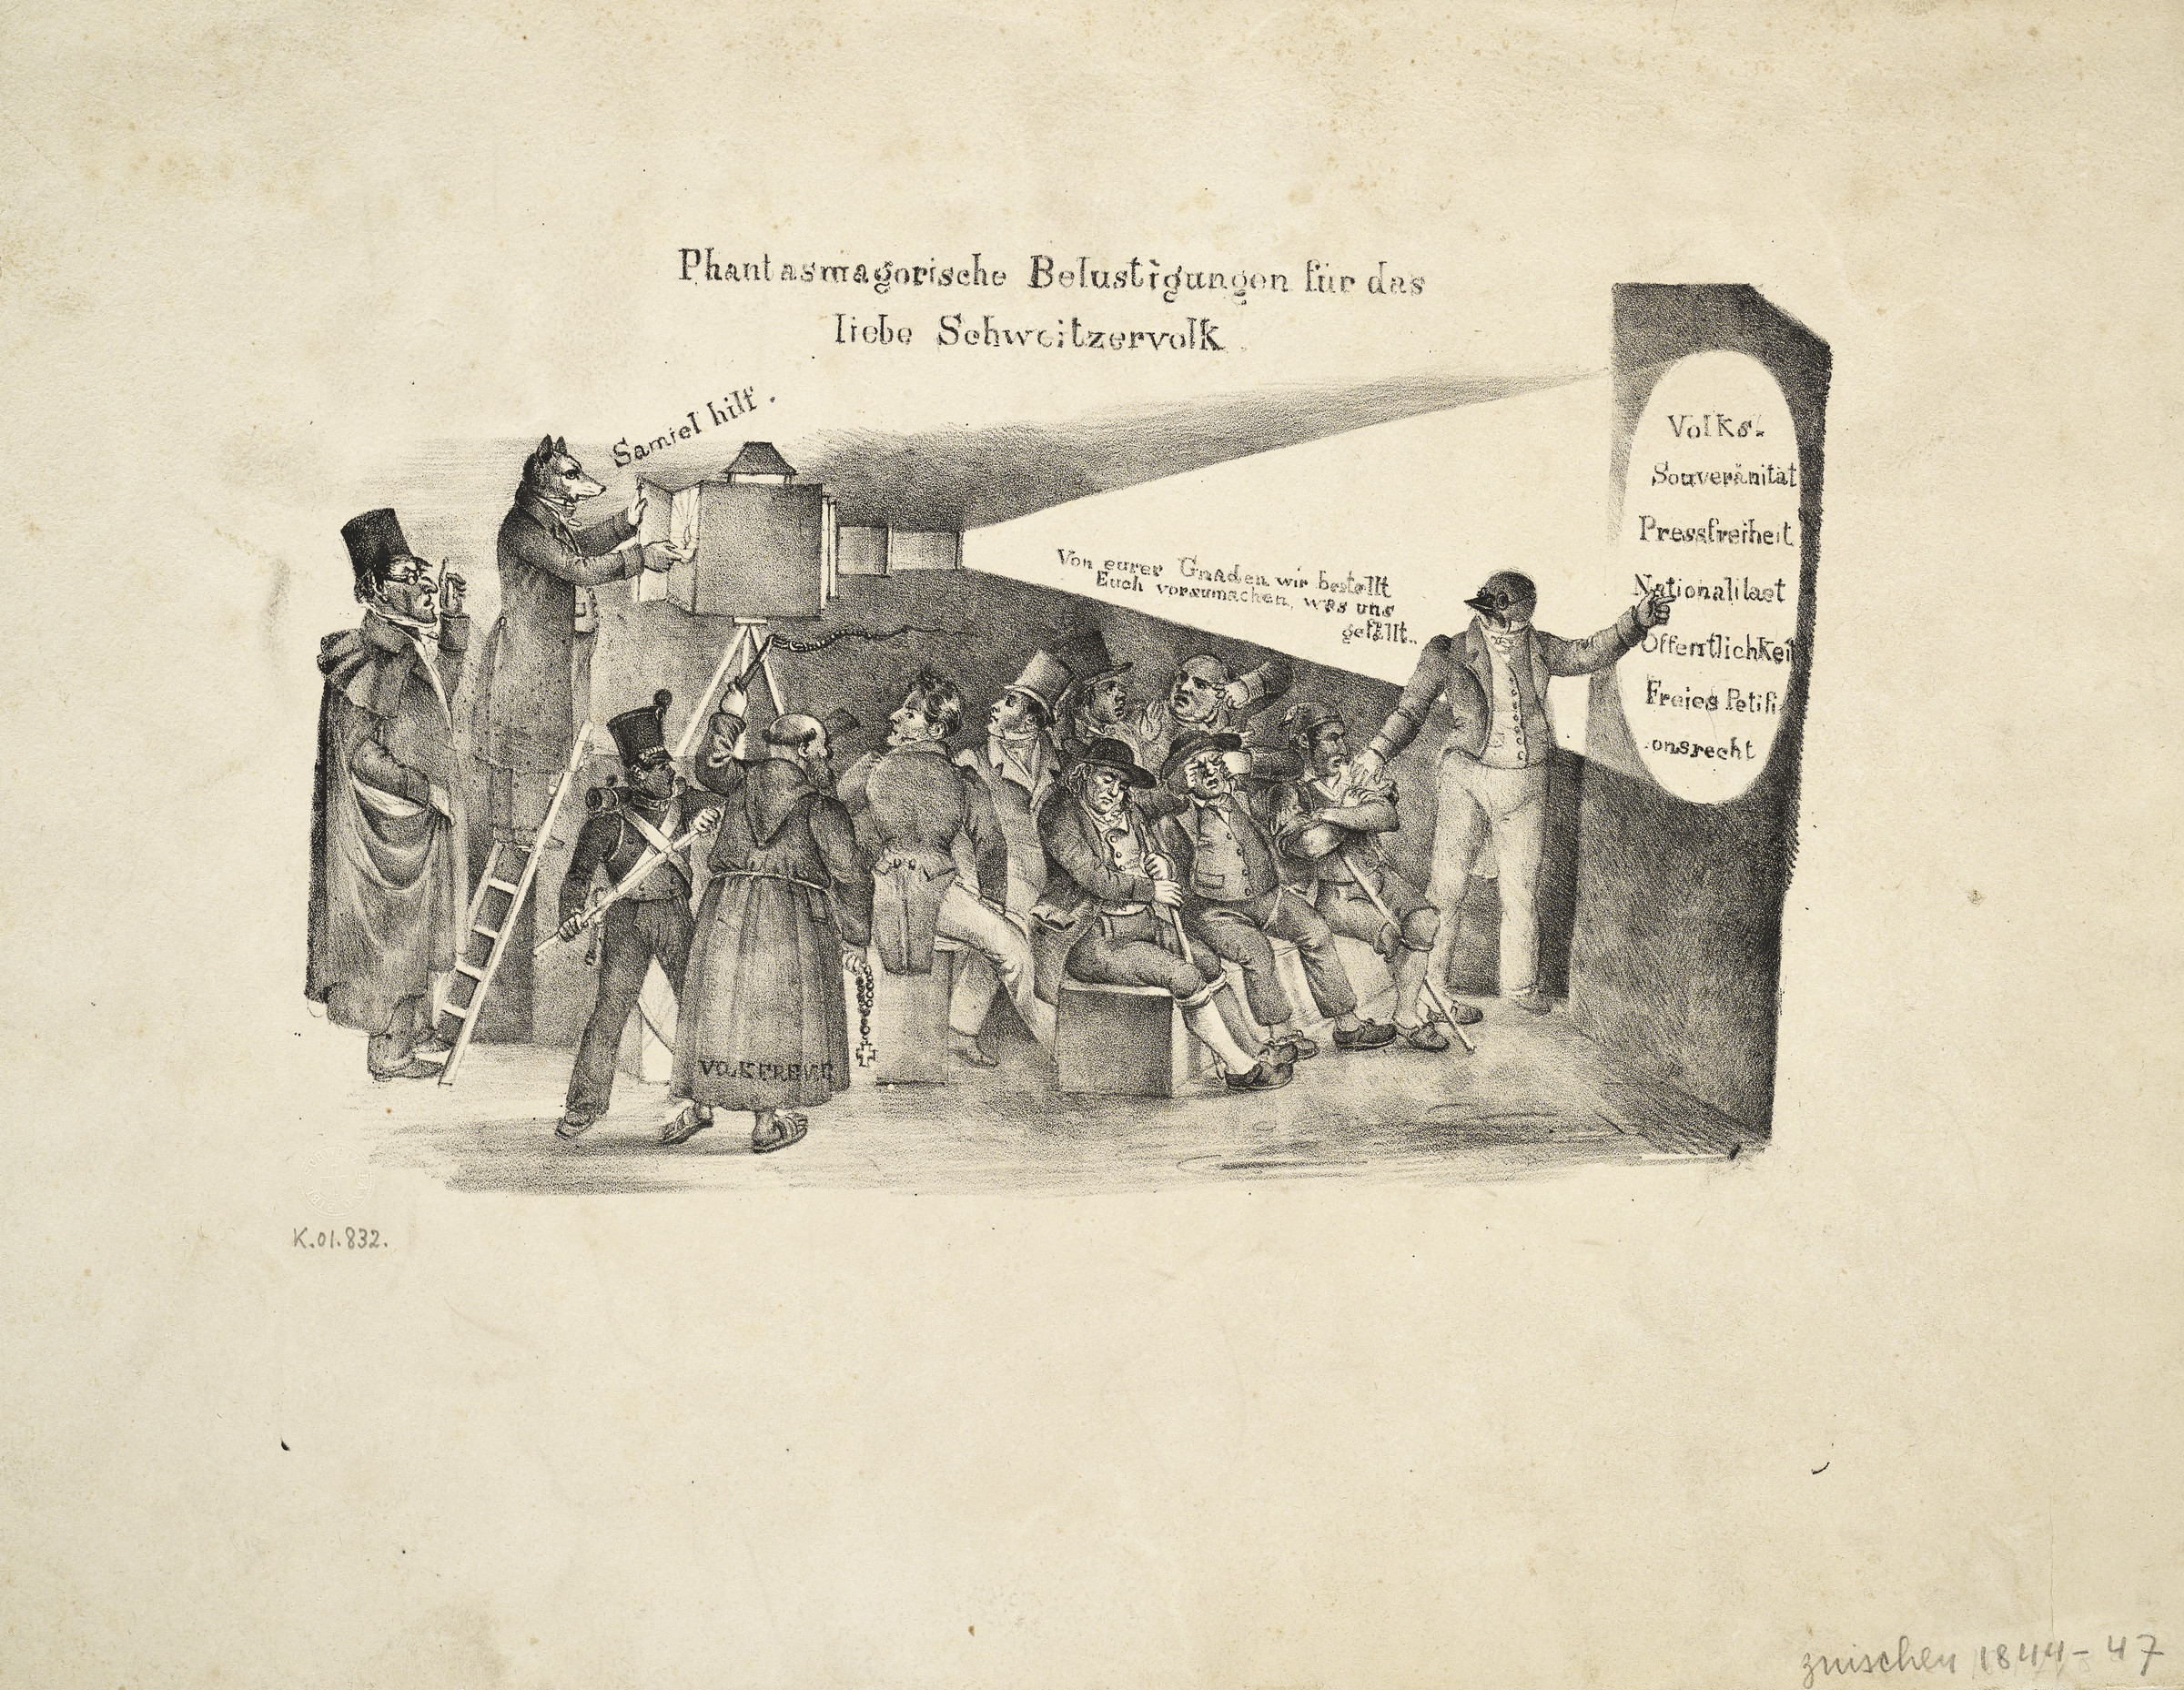 Phantasmagorische Belustigungen für das
liebe Schweitzervolk.
Samiel hilf.
Von eurer Gnaden wir bestellt
Euch vorzumachen, was uns
gefällt..
Volks-
Souveränität
Pressfreiheit
Nationalitaet
Öffentlichkeit
Freies Petiti-
onsrecht
K.01.832.
zwischen 1844-47